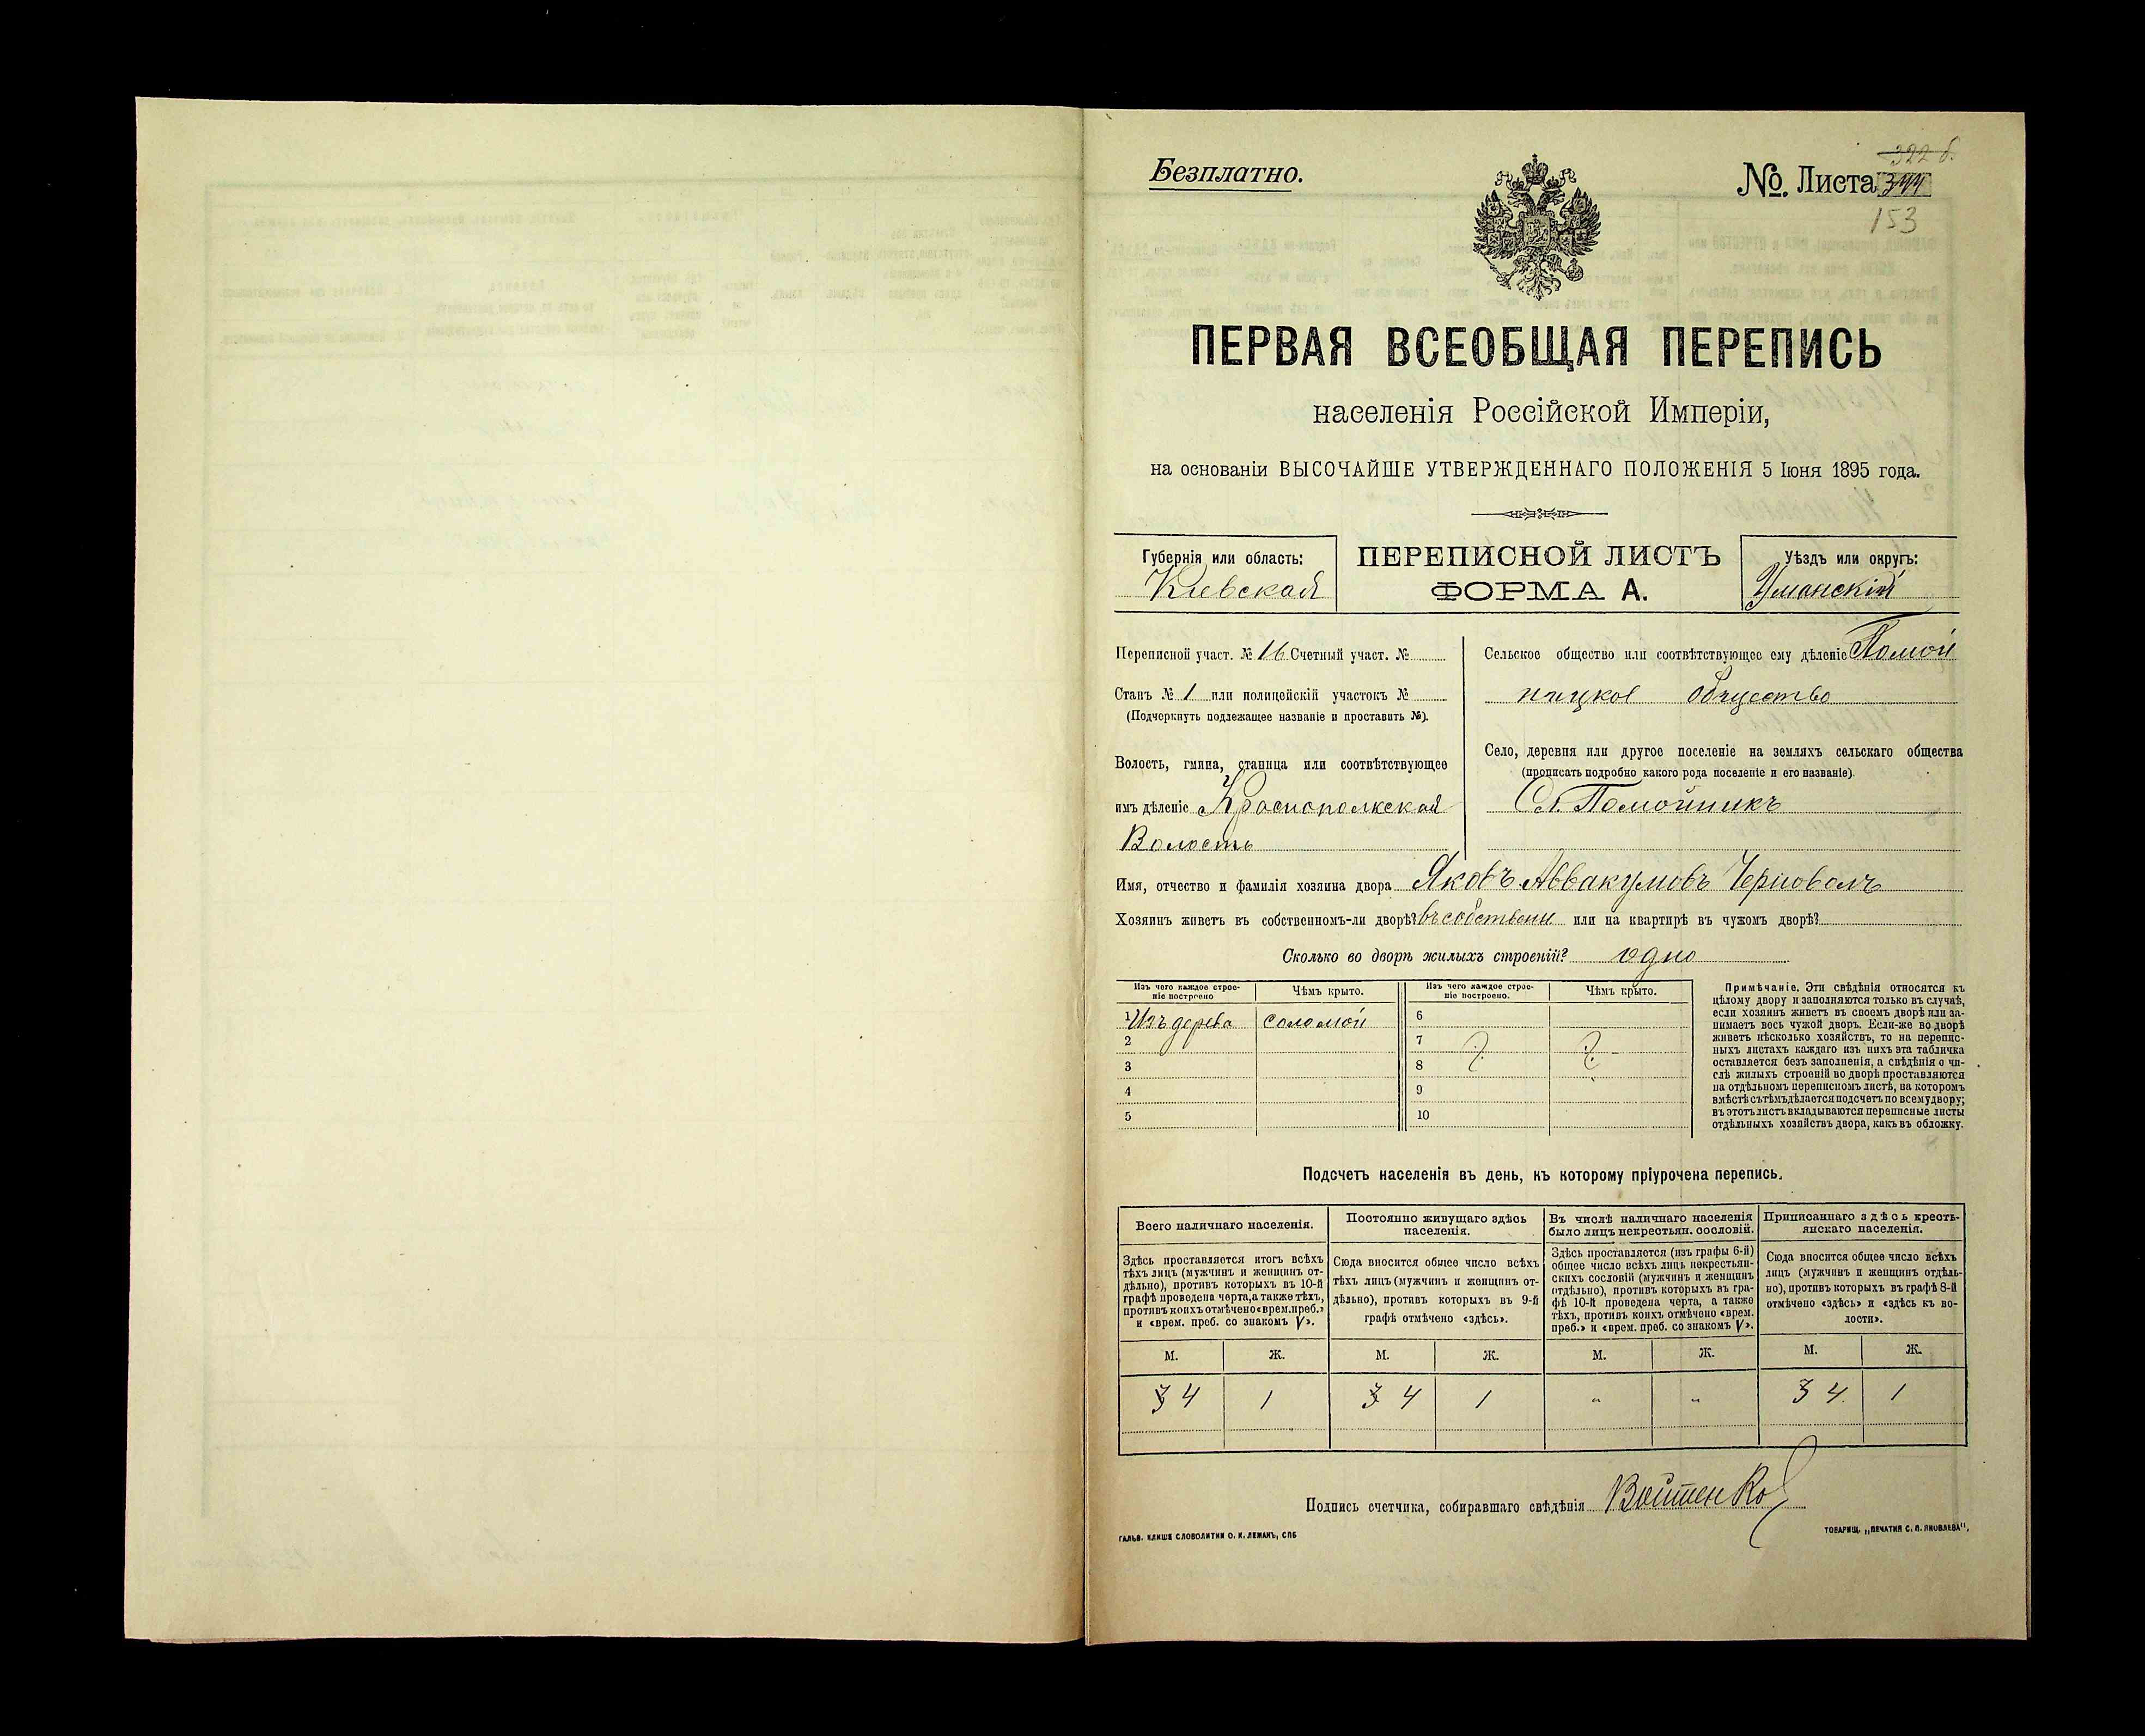 322 б.
Безплатно.
№. Листа 344
153
ПЕРВАЯ ВСЕОБЩАЯ ПЕРЕПИСЬ
населенія Россійской Имперіи,
на основаніи ВЫСОЧАЙШЕ УТВЕРЖДЕННАГО ПОЛОЖЕНІЯ 5 Іюня 1895 года.
Губернія или область:
Кіевская
ПЕРЕПИСНОЙ ЛИСТЪ
ФОРМА А.
Уѣздъ или округъ:
Уманскій
Переписной участ. № 16 Счетный участ. №
Станъ № 1 или полицейскій участокъ №
(Подчеркнуть подлежащее названіе и проставить №).
Волость, гмина, станица или соотвѣтствующее
имъ дѣленіе Краснополкская
Волость
Сельское общество или соотвѣтствующее ему дѣленіе Помой
ницкое общество
Село, деревня или другое поселеніе на земляхъ сельскаго общества
(прописать подробно какого рода поселеніе и его названіе).
Сл. Помойникъ
Имя, отчество и фамилія хозяина двора Яковъ Аввакумовъ Черноволъ
Хозяинъ живетъ въ собственномъ-ли дворѣ? въ собствени или на квартирѣ въ чужомъ дворѣ?
Сколько во дворѣ жилыхъ строеній? одно
Изъ чего каждое строе-
ніе построено
Чѣмъ крыто.
Изъ чего каждое строе-
ніе построено.
Чѣмъ крыто.
1 Изъ дерева соломой
2
3
4
5
6
7
8
9
10
Примѣчаніе. Эти свѣдѣнія относятся къ
цѣлому двору и заполняются только въ случаѣ,
если хозяинъ живетъ въ своемъ дворѣ или за-
нимаетъ весь чужой дворъ. Если-же во дворѣ
живетъ нѣсколько хозяйствъ, то на перепис-
ныхъ листахъ каждаго изъ нихъ эта табличка
оставляется безъ заполненія, а свѣдѣнія о чи-
слѣ жилыхъ строеній во дворѣ проставляются
на отдѣльномъ переписномъ листѣ, на которомъ
вмѣстѣ съ тѣмъ дѣлается подсчетъ по всему двору;
въ этотъ листъ вкладываются переписные листы
отдѣльныхъ хозяйствъ двора, какъ въ обложку.
Подсчетъ населенія въ день, къ которому пріурочена перепись.
Всего наличнаго населенія.
Здѣсь проставляется итогъ всѣхъ
тѣхъ лицъ (мужчинъ и женщинъ от-
дѣльно), противъ которыхъ въ 10-й
графѣ проведена черта, а также тѣхъ,
противъ коихъ отмѣчено «врем. преб.»
и «врем. преб. со знакомъ V».
Постоянно живущаго здѣсь
населенія.
Сюда вносится общее число всѣхъ
тѣхъ лицъ (мужчинъ и женщинъ от-
дѣльно), противъ которыхъ въ 9-й
графѣ отмѣчено «здѣсь».
Въ числѣ наличнаго населенія
было лицъ некрестьян. сословій.
Здѣсь проставляется (изъ графы 6-й)
общее число всѣхъ лицъ некрестьян-
скихъ сословій (мужчинъ и женщинъ
отдѣльно), противъ которыхъ въ гра-
фѣ 10-й проведена черта, а также
тѣхъ, противъ коихъ отмѣчено «врем.
преб.» и «врем. преб. со знакомъ V».
Приписаннаго здѣсь кресть-
янскаго населенія.
Сюда вносится общее число всѣхъ
лицъ (мужчинъ и женщинъ отдѣль-
но), противъ которыхъ въ графѣ 8-й
отмѣчено «здѣсь» и «здѣсь къ во-
лости».
М. Ж. М. Ж. М. Ж. М. Ж.
3 4 1 3 4 1 " " 3 4 1
Подпись счетчика, собиравшаго свѣдѣнія Войтенко
ГАЛЬВ. КЛИШЕ СЛОВОЛИТНИ О. И. ЛЕМАНЪ, СПБ
ТОВАРИЩ. „ПЕЧАТНЯ С. П. ЯКОВЛЕВА",